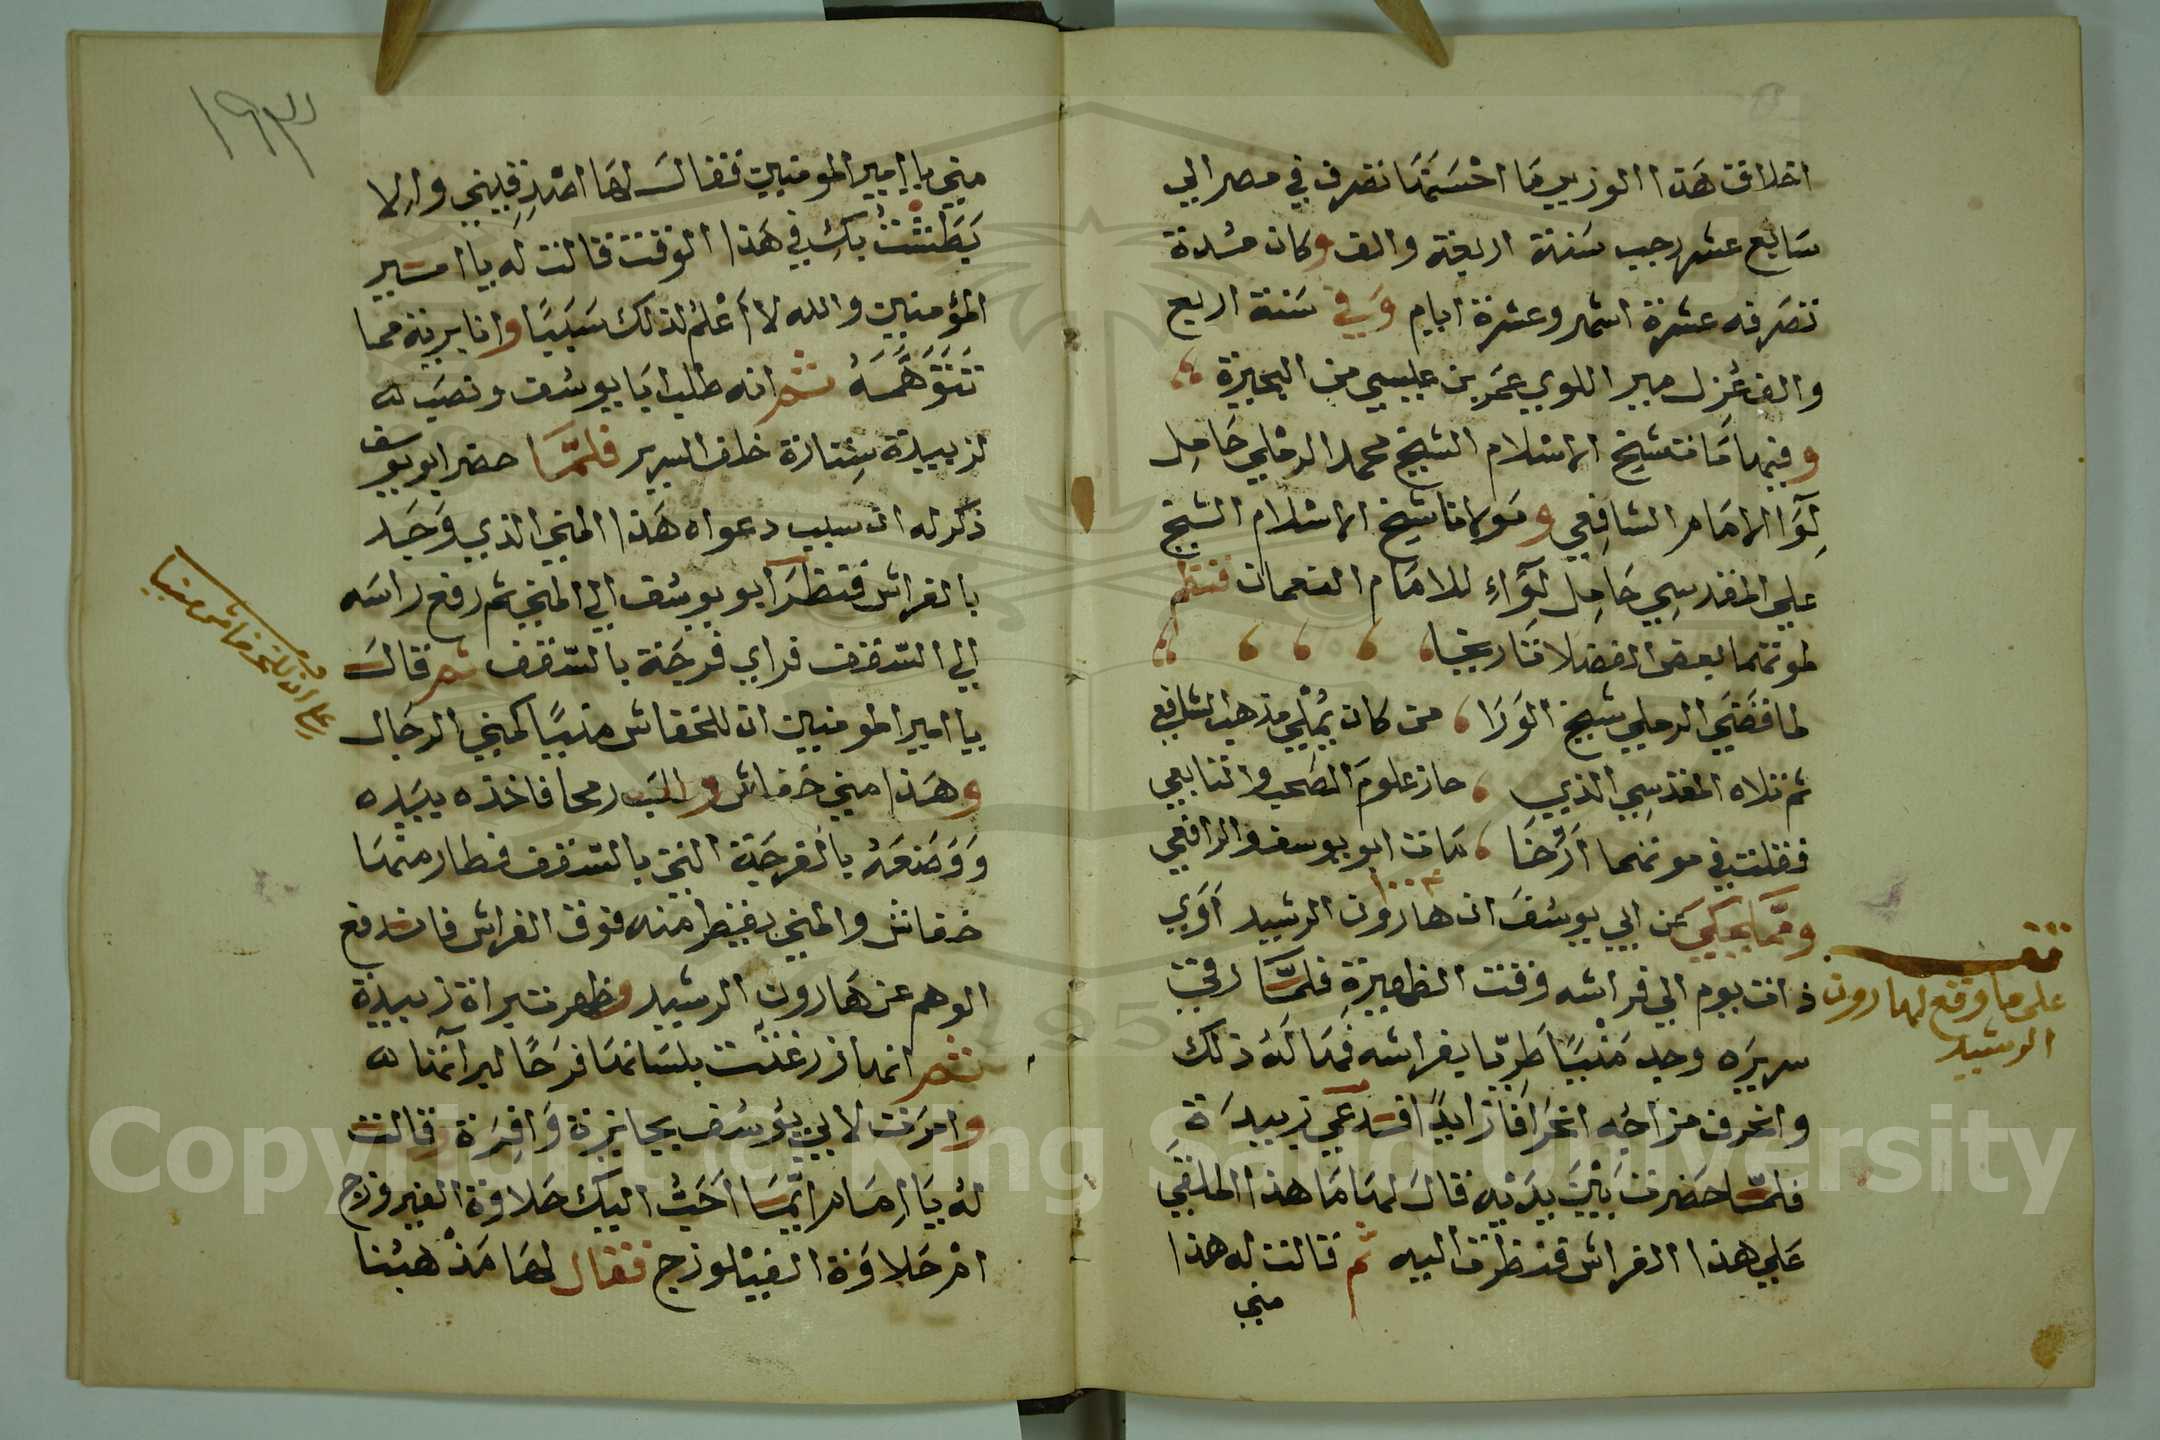 اخلاق هذا الوزير ما احسنها تصرف في مصر الي
سابع عشر رجب سنة اربعة والف وكان مدة
تصرفه عشرة اشهر وعشرة ايام وفي سنة اربع
والف عُزل مير اللوي عمر بن عيسي من البحيرة
وفيها مات شيخ الاسلام الشيخ محمد الرملي حامل
لِوَا الامام الشافِعي ومولانا شيخ الاسلام الشيخ
علي المقدسِي حَامِل لِوَاءِ للامَام النعمان فنظم
لموتهما بعض الفضلا تاريخا
لما قضَي الرملي شيخ الوَرَا من كان يُمْلِي مذهب الشافع
ثم تلاه المقدسِي الذي حاز علوم الصَحب والتابعي
فقلت في موتهما ارّخا مات ابو يوسف والرافعي
١٠٠٤
ومّما يحكي عن ابي يوسُفَ ان هارون الرشيد اَوَي
ذات يوم الي فراشه وقت الظهيرةِ فلمّا رقي
سريره وجد مَنيًا طَرِيّا بفراشه فَهَالَهُ ذلك
وانحرف مزاجُه انحرافا زايدًا فسدعي زبيدَة
فلمّا حَضرت بَيْن يدَيْه قال لها مَا هذا الملقي
عَلي هذا الفراش فنظرت اليه ثم قالت له هذا
مني
قف
علي ما وقع لهارون
الرشيد
١٩٣
مني يا امير المومنين فقال لها اصْدِقِيني وَاِلا
بَطَشْتُ بِكِ في هَذا الوقت قالت له يا امير
المؤمنين والله لا أعْلَمُ لذلك سَبَبًا وانا برية مما
تَتَوَهَّمَهُ ثم انه طلب ابَا يوسُف ونصَب له
لزبيدة سِتارة خلف السرير فلمَّا حضر ابو يوسف
ذكر له ان سبب دعواه هَذا المني الذي وَجَد
بالفراش فنظرَ ابو يوسُف الي المني ثم رفع راسَه
الي السّقف فراي فرجَة بالسّقف ثم قالَ
يا امير المومنين ان للخفاش منيًا كمني الرجال
وهَذا مني خفاش وطلب رمحا فاخذه بيَده
وَوَضعَهُ بالفرجَة التي بالسّقف فطار منها
خفاش والمني يقطر منه فوق الفراش فاندفع
الوهم عن هَارون الرشيد وظهرت براة زبيدة
ثم انها زرغتت بلسَانها فرحًا لبرآتها له
وامرَت لابي يُوسُف بجايزة وَافِرَة وقالت
لهُ يَا اِمَام ايّمَا اَحَبُّ اليك حَلاوة الفيروزج
امْ حَلاوَة الفيْلوزج فقال لها مَذْهبُنا
علي ان للخفاش منيا